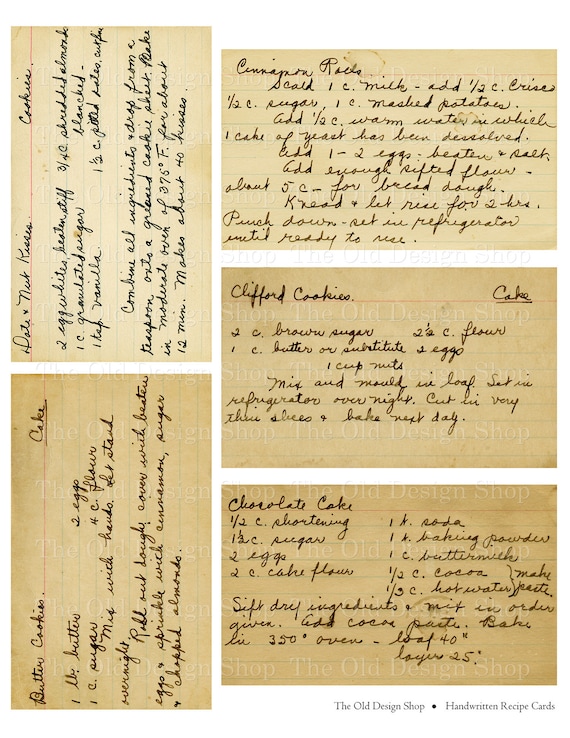 Date & Nut Kisses. Cookies.
2 egg whites, beaten stiff 3/4 c. shredded almonds
1 c. granulated sugar blanched -
1 tsp vanilla 1 1/2 c. pitted dates, cut fine
Combine all ingredients & drop from a
teaspoon onto a greased cookie sheet. Bake
in moderate oven of 375° F. for about
12 min. Makes about 40 kisses.
Cinnamon Rolls
Scald 1 c. milk - add 1/2 c. Crisco
1/2 c. sugar, 1 c. mashed potatoes.
Add 1/2 c. warm water in which
1 cake of yeast has been dessolved.
Add 1 - 2 eggs - beaten & salt.
Add enough sifted flour -
about 5 c - for bread dough.
Knead & let rise for 2 hrs.
Punch down - set in refrigerator
until ready to use.
Clifford Cookies. Cake
2 c. brown sugar 2 1/2 c. flour
1 c. butter or substitute 2 eggs
1 cup nuts
Mix and mould in loaf. Set in
refrigerator over night. Cut in very
thin slices & bake next day.
Butter Cookies. Cake
1 lb. butter 2 eggs
1 c. sugar 4 c. flour
Mix with hands. Let stand
overnight
Roll out dough, cover with beaten
eggs & sprinkle with cinnamon, sugar
& chopped almonds.
Chocolate Cake
1/2 c. shortening 1 t. soda
1 1/2 c. sugar 1 t. baking powder
2 eggs 1 c. buttermilk
2 c. cake flour 1/2 c. cocoa } make
1/3 c. hot water } paste.
Sift dry ingredients & mix in order
given. Add cocoa paste. Bake
in 350° oven - loaf 40"
layer 25"
The Old Design Shop
The Old Design Shop • Handwritten Recipe Cards